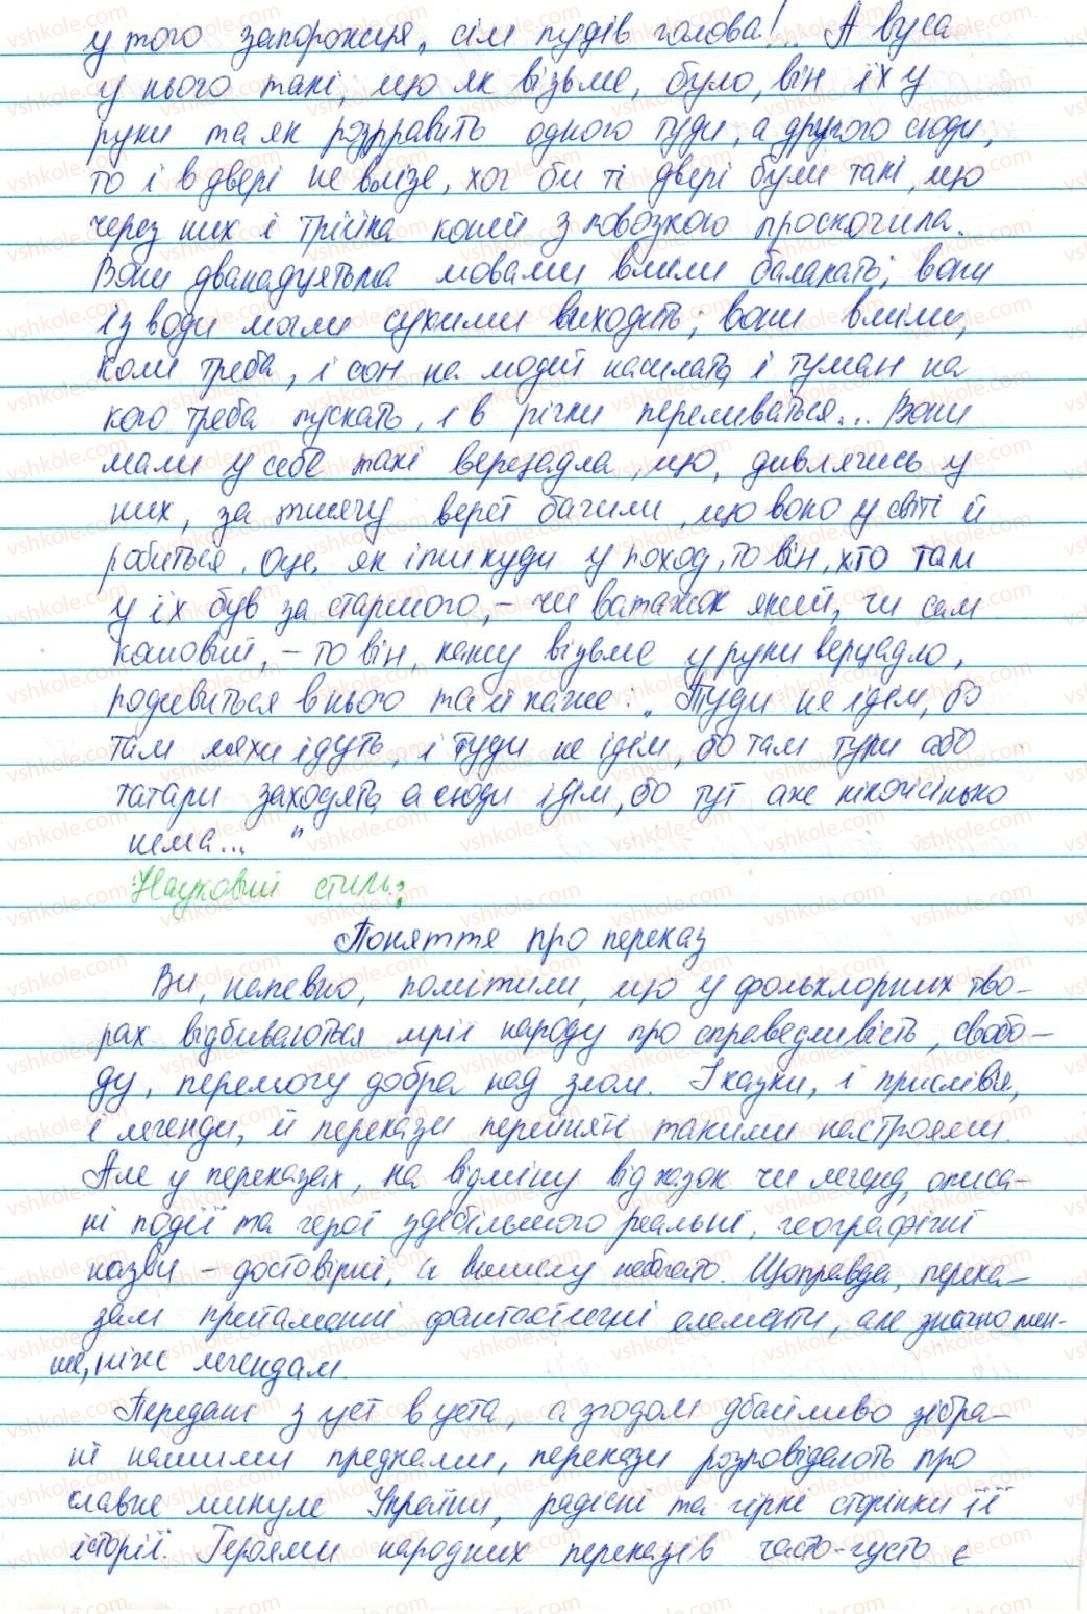 у того запорожця, сім пудів голова!.. А вуса
у нього такі, що як візьме, було, він їх у
руки та як розправить одного туди, а другого сюди,
то і в двері не влізе, хоч би ті двері були такі, що
через них і трійка коней з повозкою проскочила.
Вони дванадцятьма мовами вміли балакать; вони
із води могли сухими виходить; вони вміли,
коли треба, і сон на людей насилать, і туман на
кого треба пускать, і в річки переливаться... Вони
мали у себе такі верцадла, що, дивлячись у
них, за тисячу верст бачили, що воно у світі й
робиться. Оце, як іти куди у поход, то він, хто там
у їх був за старшого, - чи ватажок який, чи сам
кошовий, - то він, кажу візьме у руки верцадло,
подивиться в нього та й каже: „Туди не ідіть, бо
там ляхи ідуть, і туди не ідіть, бо там турки або
татари заходять, а сюди ідіть, бо тут аже нікогісінько
нема... "
Науковий стиль:
Поняття про переказ
Ви, напевно, помітили, що у фольклорних тво-
рах відбиваються мрії народу про справедливість, свобо-
ду, перемогу добра над злом. І казки, і прислів'я,
і легенди, й перекази перейняті такими настроями.
Але у переказах, на відміну від казок чи легенд, описа-
ні події та герої здебільшого реальні, географічні
назви - достовірні, а вимислу небагато. Щоправда, перека-
зам притаманні фантастичні елементи, але значно мен-
ше, ніж легендам.
Передані з уст в уста, а згодом дбайливо зібра-
ні нашими предками, перекази розповідають про
славне минуле України, радісні та гіркі сторінки її
історії. Героями народних переказів часто-густо є